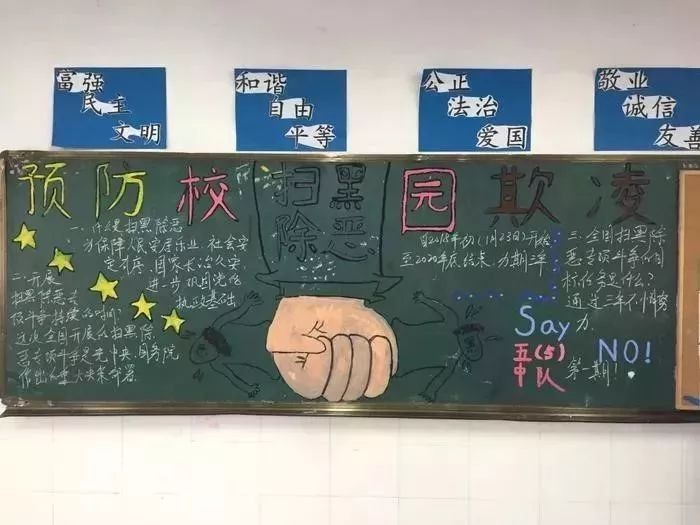 富强
民主
文明
和谐
自由
平等
公正
法治
爱国
敬业
诚信
友善
预防校园欺凌
扫黑
除恶
一、什么是扫黑除恶
为保障人民安居乐业、社会安
定有序、国家长治久安
进一步巩固党的
执政基础
二、开展
扫黑除恶专
项斗争持续的时间?
这次全国开展的扫黑除
恶专项斗争是党中央、国务院
作出的重大决策部署
自2018年份(1月23日)开始
至2020年底结束,为期三年
三、全国扫黑除
恶专项斗争的目
标任务是什么?
通过三年不懈努
力
Say
NO!
五(5)
中队
第一期!